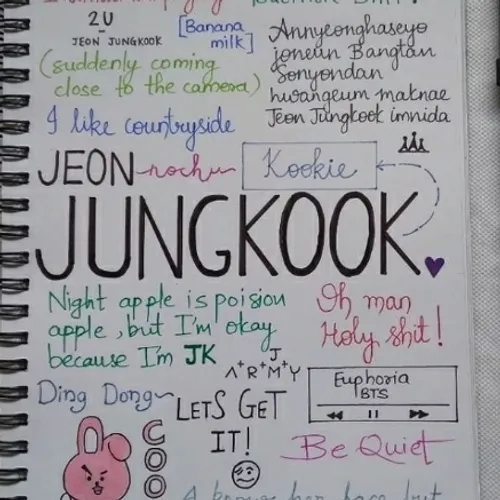 2U
JEON JUNGKOOK
[Banana
milk]
Annyeonghaseyo
joneun Bangtan
Sonyondan
hwangeum maknae
Jeon Jungkook imnida
(suddenly coming
close to the camera)
I like countryside
JEON
nochu
Kookie
JUNGKOOK
Night apple is poision
apple, but I'm okay
because I'm JK
Oh man
Holy shit!
J
A+R+M+Y
Euphoria
BTS
Ding Dong~
LETS GET
IT!
Be Quiet
COO